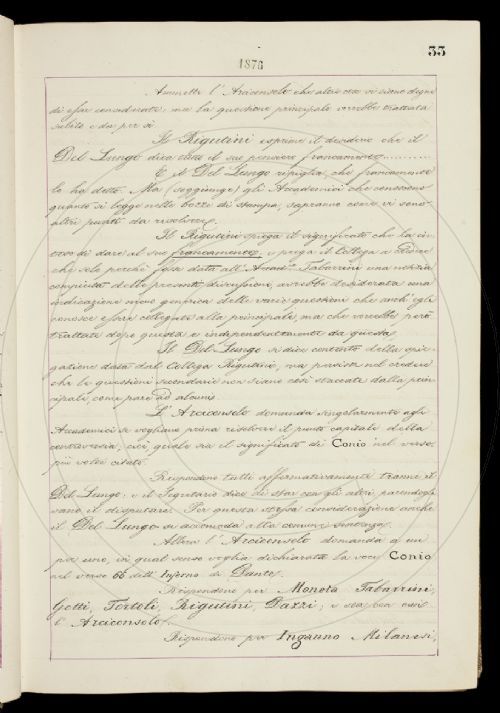 33
1876
Ammette l'Arciconsolo che altre cose vi siano degne
di esser considerate; ma la questione principale vorrebbe trattata
subito e da per sè.
Il Rigutini esprime il desiderio che il
Del Lungo dica tutto il suo pensiero francamente
E il Del Lungo ripiglia, che francamente
lo ha detto. Ma (soggiunge) gli Accademici che conoscono
quanto si legge nelle bozze di stampa, sapranno come vi sono
altri punti da risolvere.
Il Rigutini spiega il significato che ha in-
teso di dare al suo francamente, e prega il Collega a
che solo perchè fosse data all' Tabarrini una notizia
compiuta della presente discussione, avrebbe desiderata una
indicazione meno generica delle varie questioni che anch'egli
conosce essere collegate alla principale, ma che vorrebbe però
trattate dopo questa e indipendentemente da questa.
Il Del Lungo si dice contento della spie-
gazione data dal Collega Rigutini, ma persiste nel credere
che le questioni secondarie non siano così staccate dalla prin-
cipale, come pare ad alcuni.
L'Arciconsolo domanda singolarmente agli
Accademici se vogliano prima risolvere il punto capitale della
controversia; cioè, quale sia il significato di Conio nel verso
più volte citato.
Rispondono tutti affermativamente tranne il
Del Lungo: e il Segretario dice di star con gli altri, parendogli
vano il disputare. Per questa stessa considerazione anche
il Del Lungo si accomoda alla comune sentenza.
Allora l'Arciconsolo domanda a uno
per uno, in qual senso voglia dichiarata la voce Conio
nel verso 66 dell' Inferno di Dante.
Rispondono per Moneta Tabarrini,
Gotti, Tortoli, Rigutini, Dazzi; e
l'Arciconsolo.
Rispondono per Inganno Milanesi,